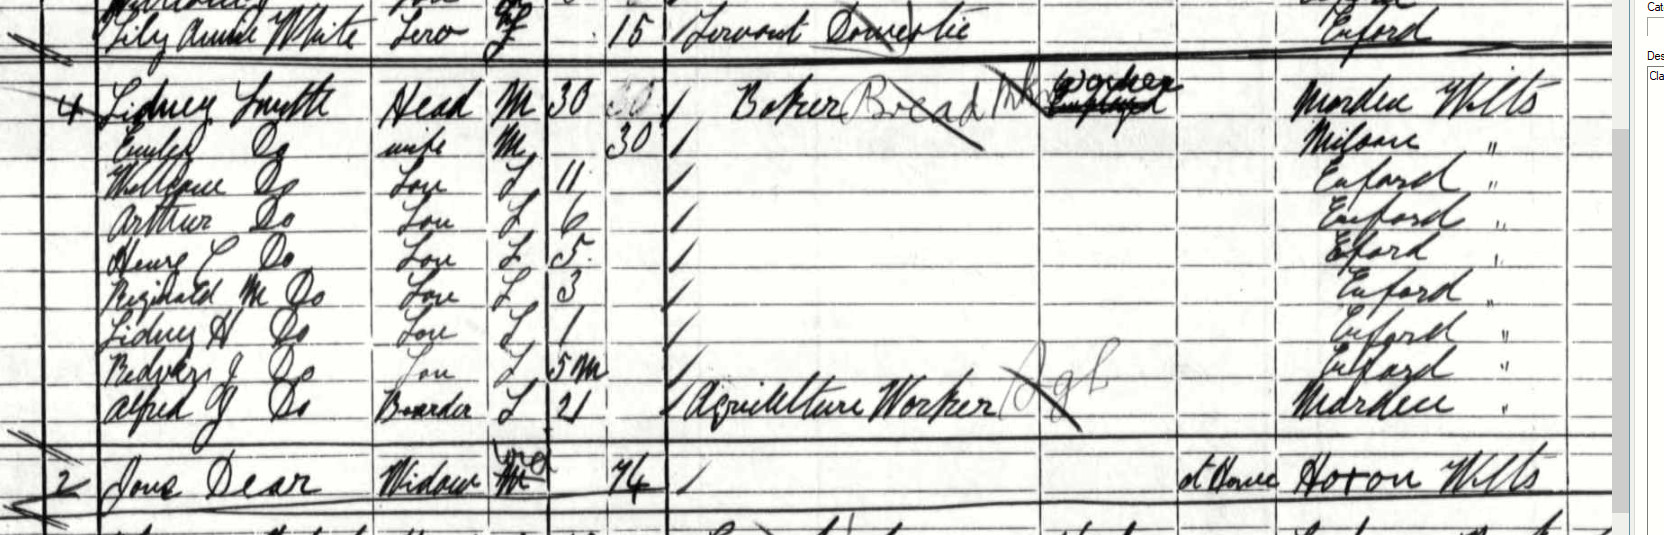 Lily Annie White Serv S 15 Servant Domestic Enford
4 Sidney Smith Head M 30 Baker Bread Worker Marden Wilts
Do wife M 30 Milson "
William Do Son S 11 Enford "
Arthur Do Son S 6 Enford "
Henry C Do Son S 5 Eford "
Reginald M Do Son S 3 Enford "
Sidney H Do Son S 1 Enford "
J Do Son S 5M Enford "
Alfred J Do Boarder S 21 Agriculture Worker Agl Marden "
2 Jane Dear Widow Wid 74 at Home Horon Wilts
Cat
Des
Cla